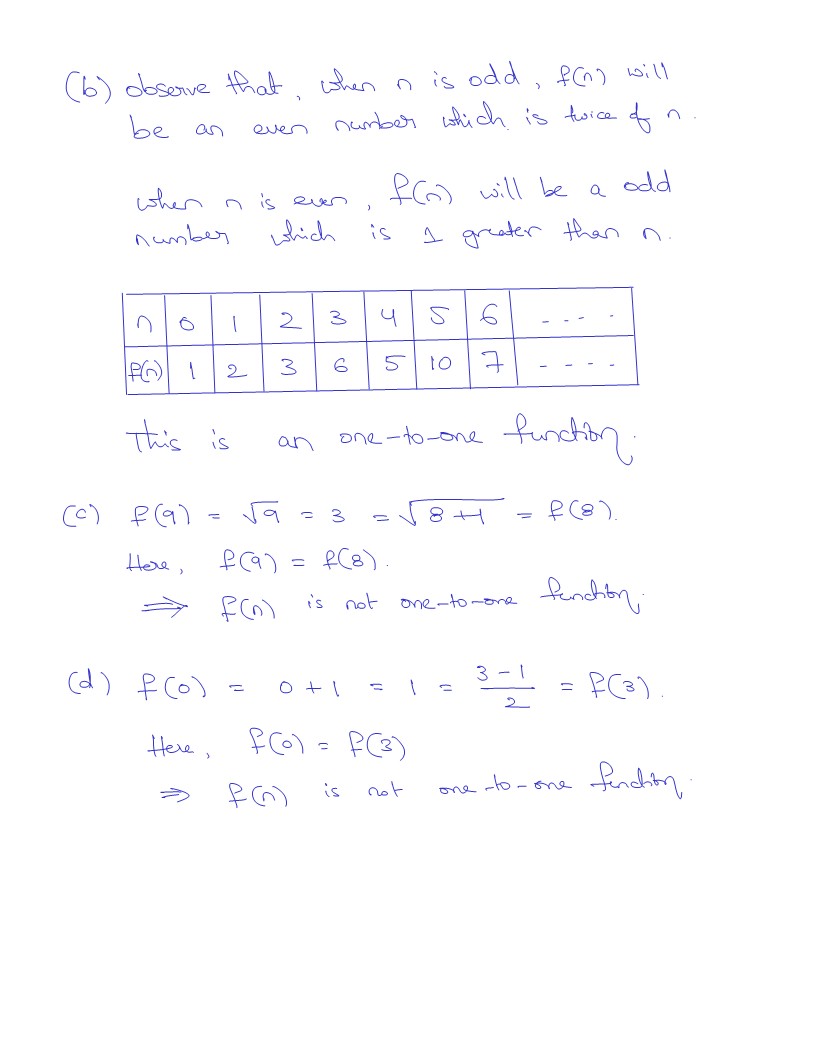 (b) observe that, when n is odd, f(n) will
be an even number which is twice of n.
when n is even, f(n) will be a odd
number which is 1 greater than n.
n 0 1 2 3 4 5 6 ....
f(n) 1 2 3 6 5 10 7 ....
This is an one-to-one function.
(c) f(9) = √9 = 3 = √(8+1) = f(8).
Here, f(9) = f(8).
⟹ f(n) is not one-to-one function.
(d) f(0) = 0+1 = 1 = (3-1)/2 = f(3).
Here, f(0) = f(3)
⟹ f(n) is not one-to-one function.